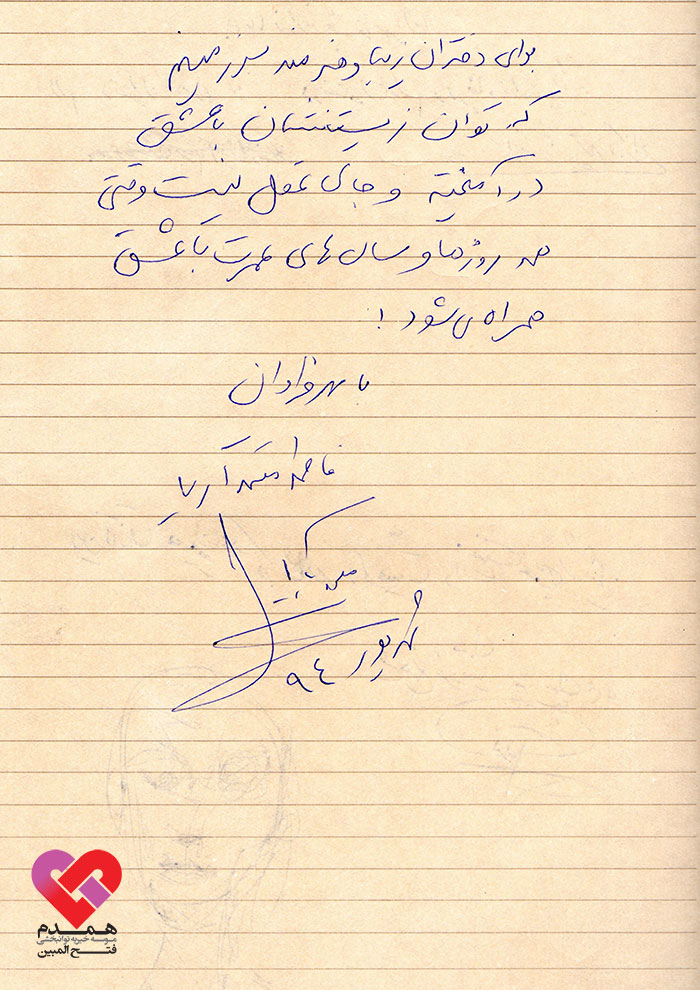 برای دختران زیبا و هنرمند سرزمینم
که توان زیستنشان با عشق
درآمیخته و جای تامل نیست وقتی
همه روزها و سال های عمرت با عشق
همراه می شود !
با مهر فراوان
فاطمه معتمدآریا
شهریور ۹۴
همدم
موسسه خیریه توانبخشی
فتح المبین